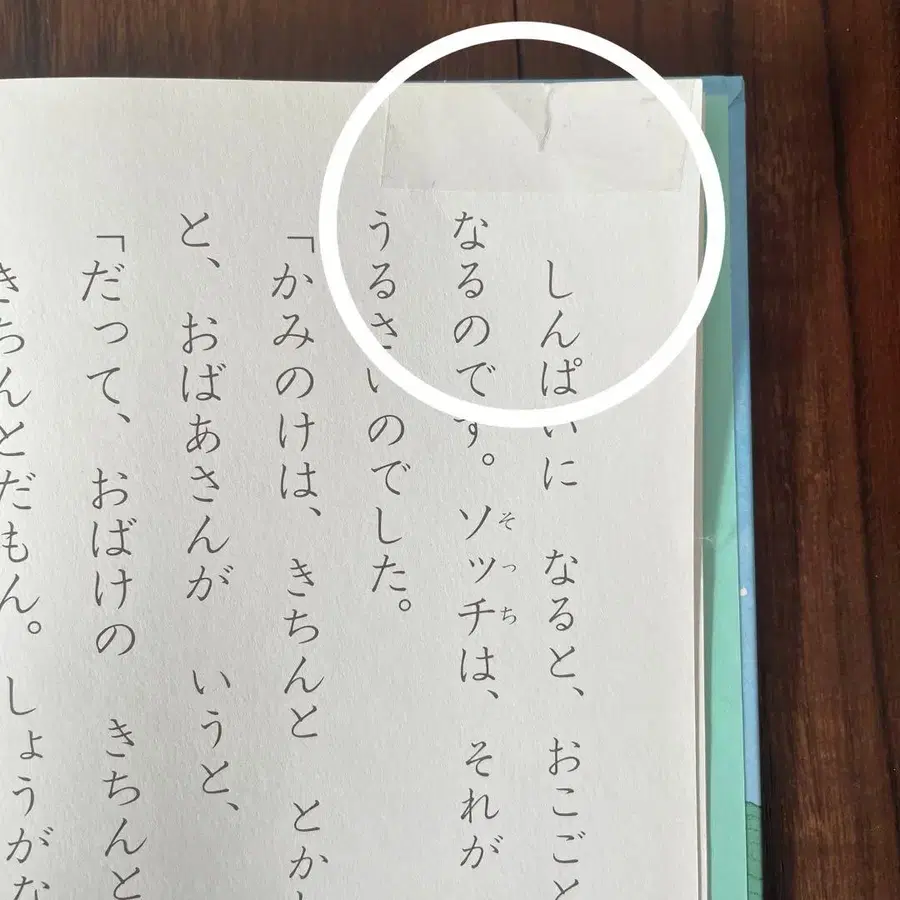 しんぱいに　なると、おこごと
なるのです。ソッチは、それが
うるさいのでした。
「かみのけは、きちんと　とか
と、おばあさんが　いうと、
「だって、おばけの　きちんと
きちんとだもん。しょうがな